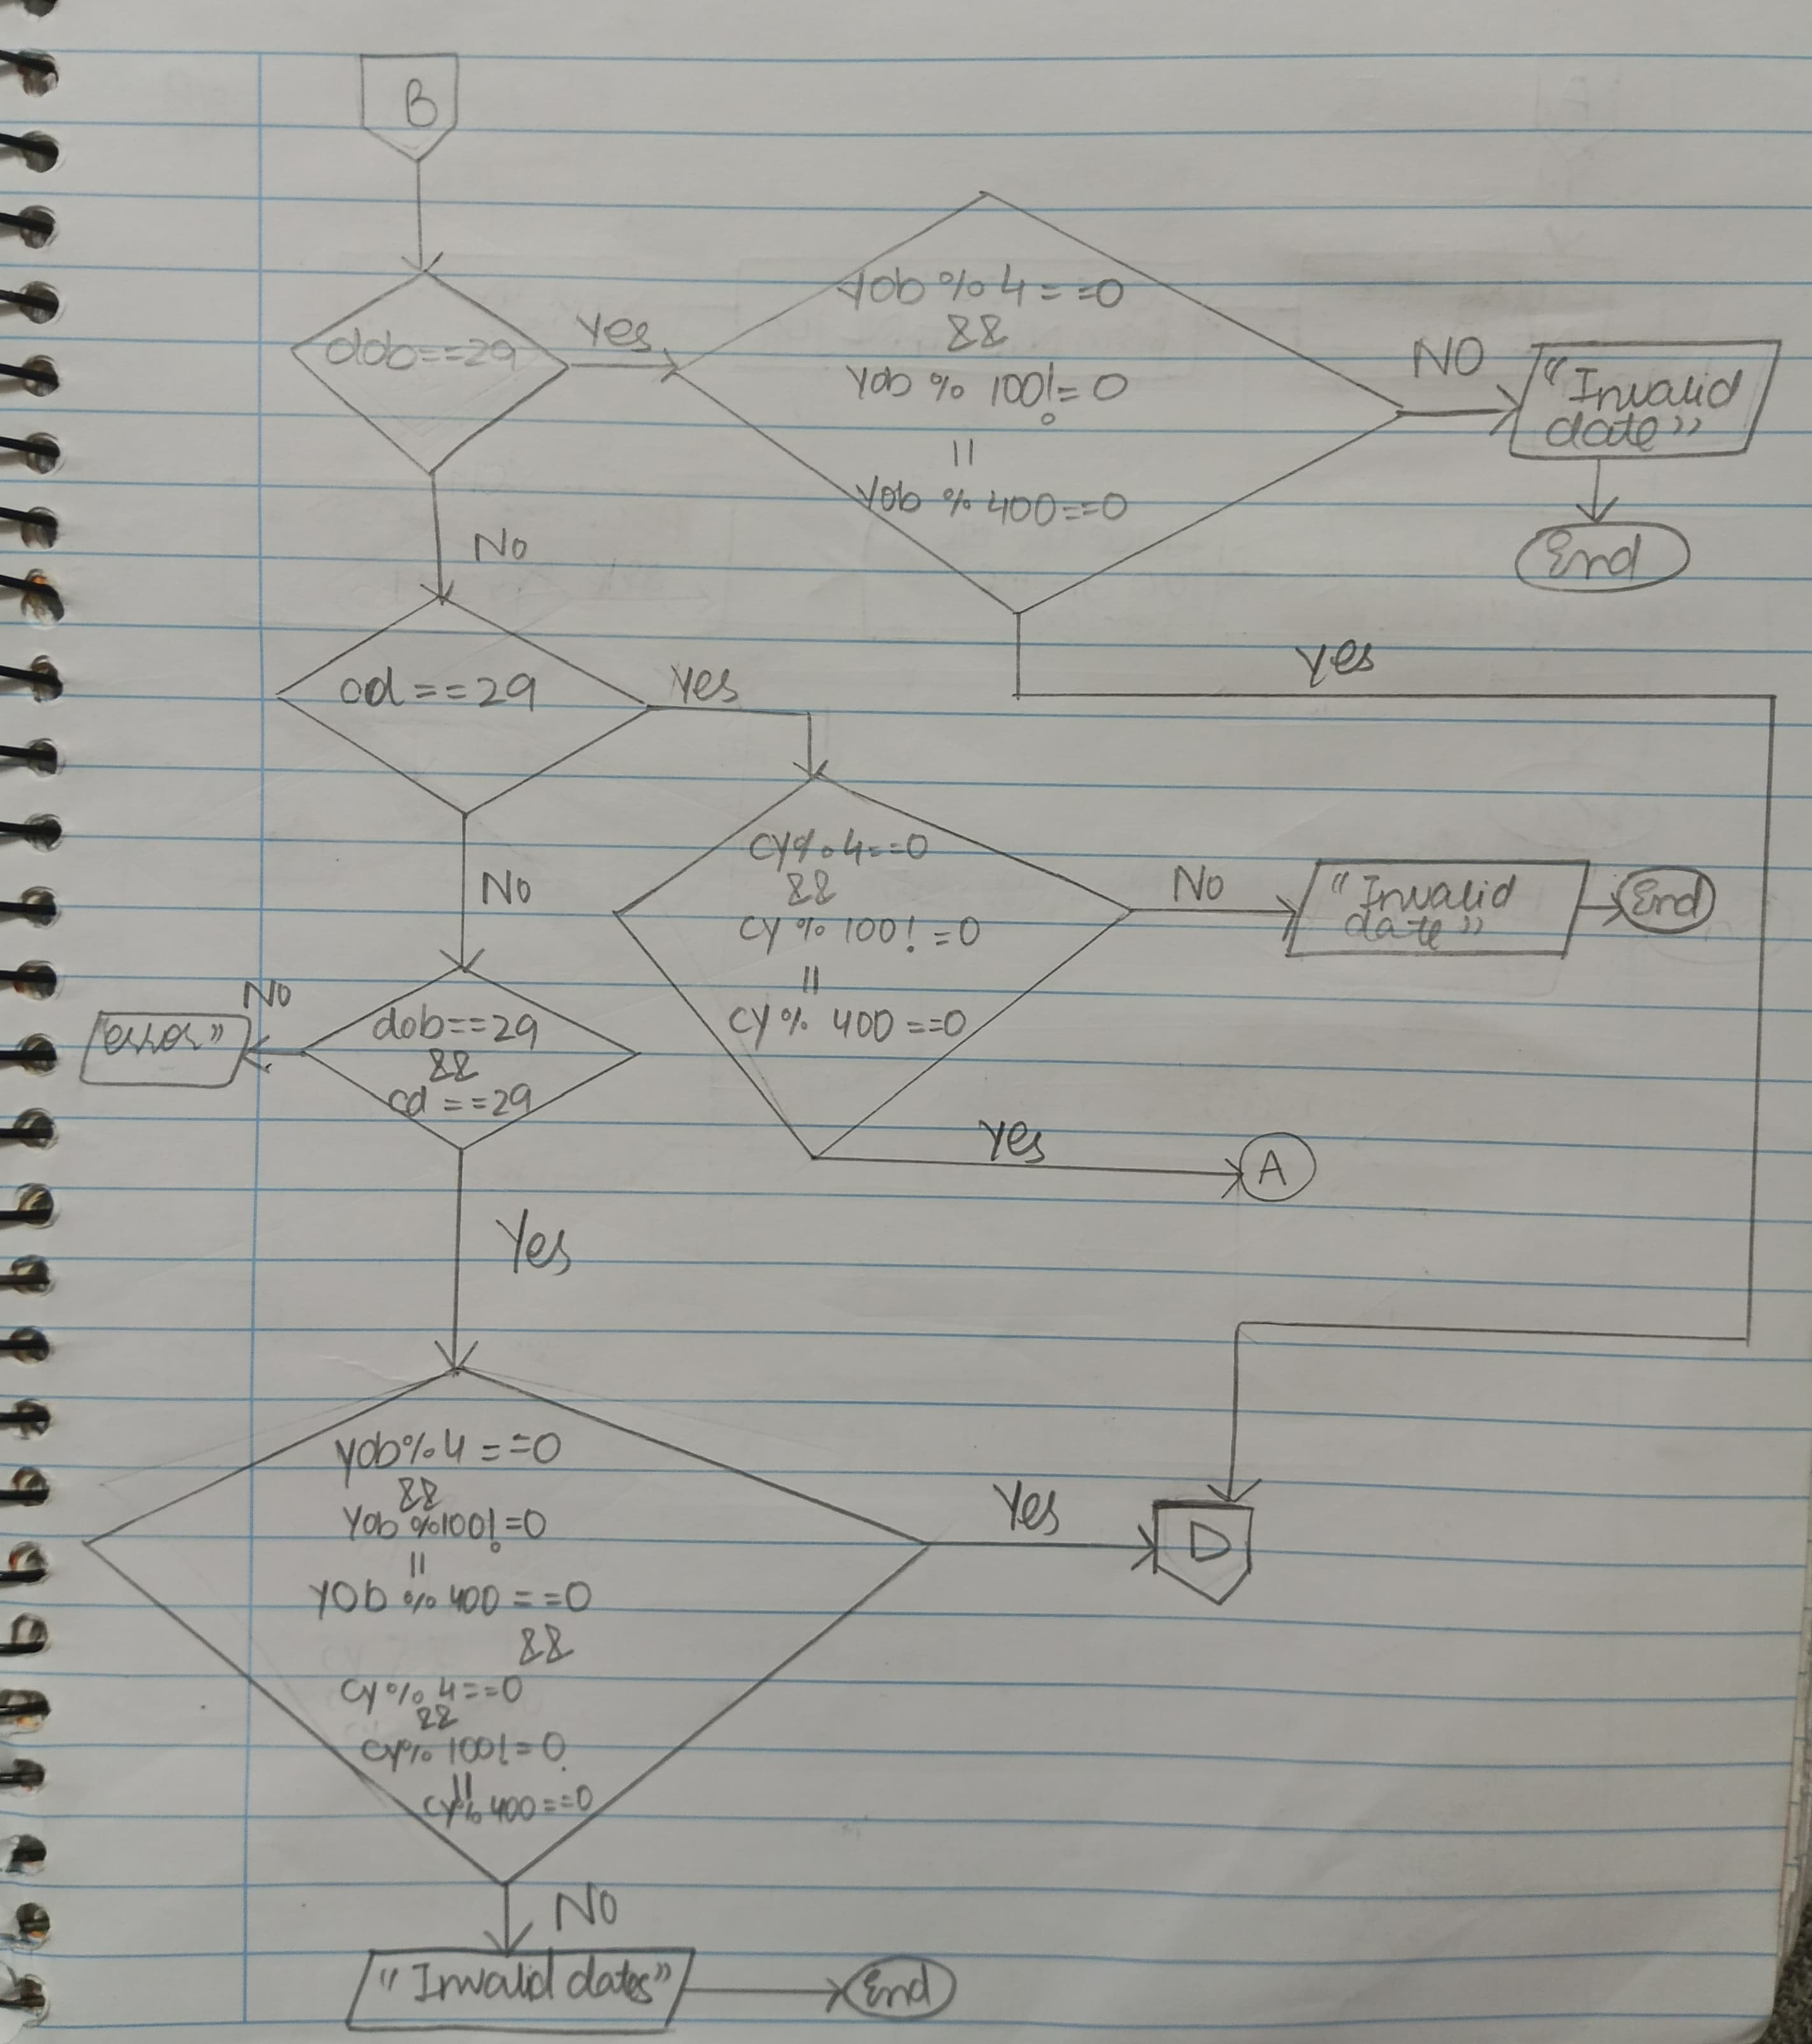 B
dob==29
Yes
Yob % 4 = =0
&&
Yob % 100!= 0
||
Yob % 400==0
NO
"Invalid
date"
End
No
yes
cd ==29
Yes
cy%4==0
&&
cy % 100! =0
||
cy % 400 ==0
No
"Invalid
date"
End
No
dob==29
&&
cd ==29
error"
Yes
A
Yes
Yob%4 ==0
&&
Yob %100!=0
||
YOb % 400 ==0
&&
cy% 4==0
&&
cy% 100!=0
||
cy% 400==0
Yes
D
NO
"Invalid dates"
End